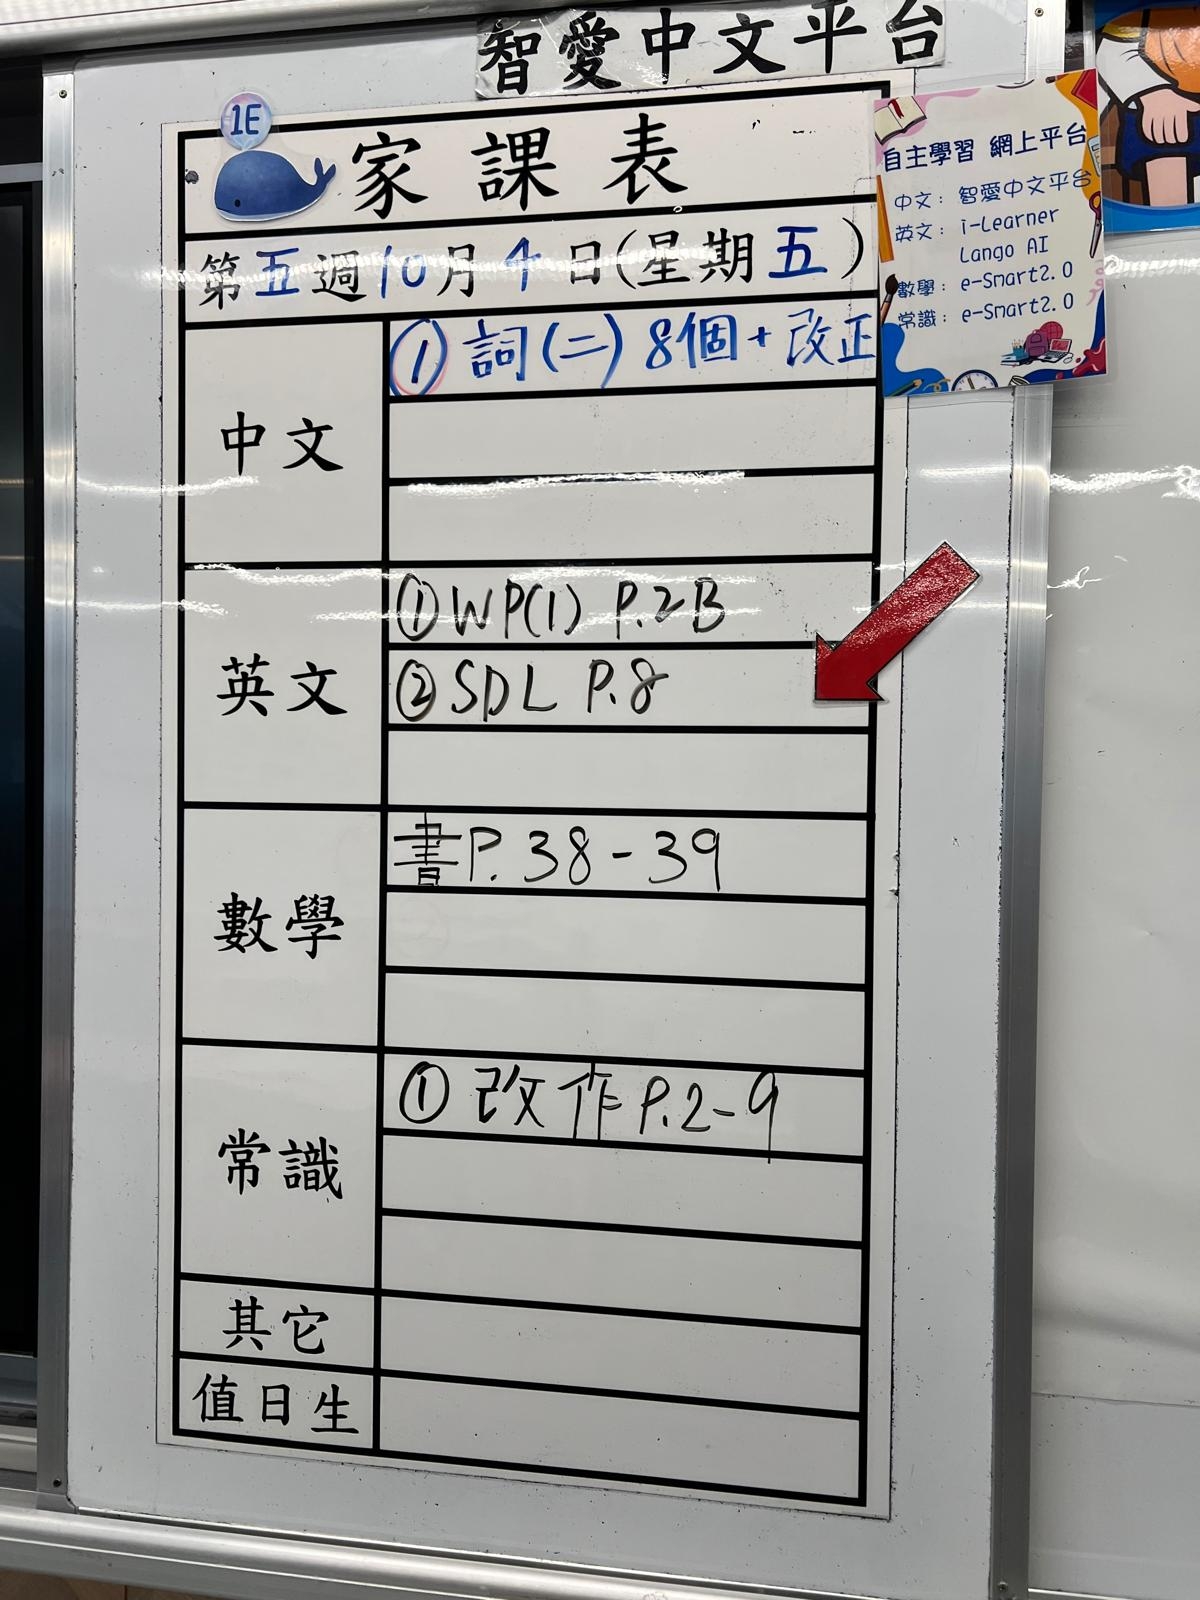 智愛中文平台
1E
家課表
第五週10月4日(星期五)
中文
① 詞(二) 8個 + 改正
英文
① WP(1) P.2B
② SDL P.8
數學
書P.38-39
常識
① 改作P.2-9
其它
值日生
自主學習 網上平台
中文：智愛中文平台
英文：i-Learner
Lango AI
數學：e-Smart2.0
常識：e-Smart2.0